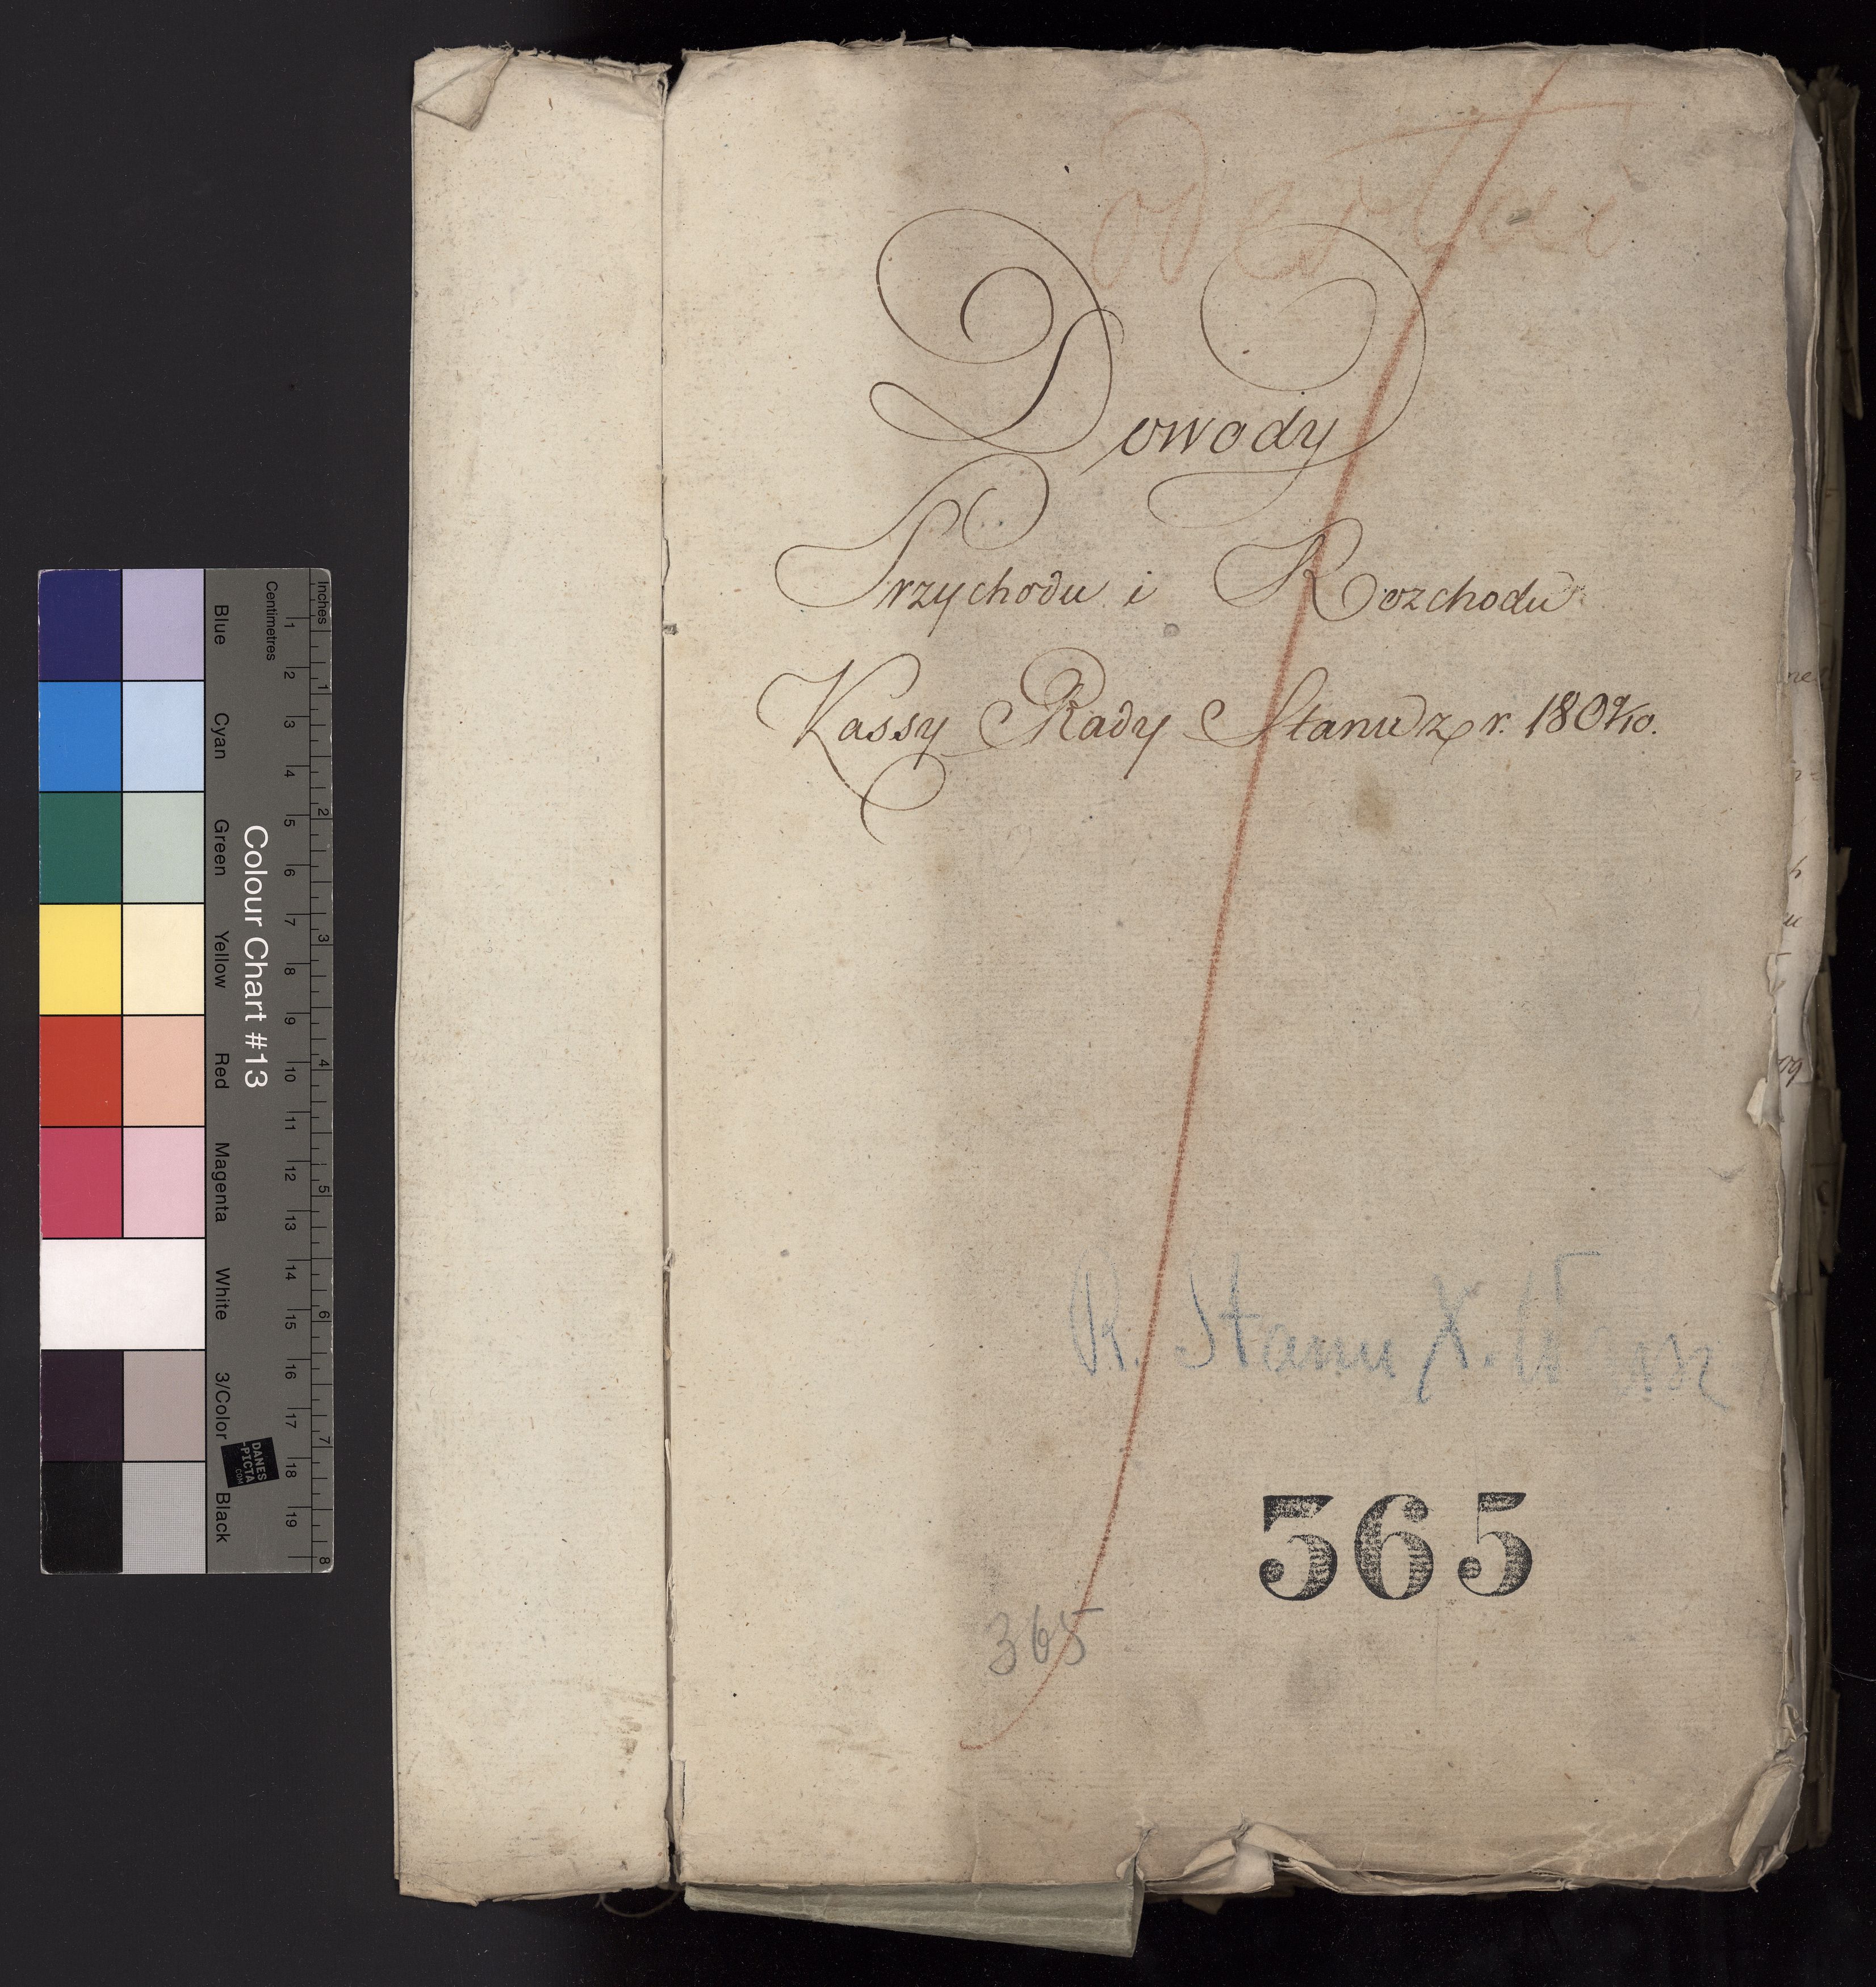 Dowody
Przychodu i Rozchodu
Kassy Rady Stanu z r. 1809/10.
R. Stanu X. W
365
365
Colour Chart #13
Blue Cyan Green Yellow Red Magenta White 3/Color Black
Centimetres 1 2 3 4 5 6 7 8 9 10 11 12 13 14 15 16 17 18 19
Inches 1 2 3 4 5 6 7 8
DANES
-PICTA
.COM